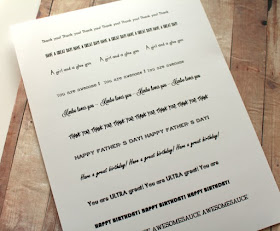 Thank you! Thank you! Thank you! Thank you! Thank you!
HAVE A GREAT DAY! HAVE A GREAT DAY! HAVE A GREAT DAY!
A girl and a glue gun A girl and a glue gun
You are awesome! You are awesome! You are awesome!
loves you - loves you - loves you
THANK YOU! THANK YOU! THANK YOU! THANK YOU! THANK YOU!
HAPPY FATHER'S DAY! HAPPY FATHER'S DAY!
Have a great birthday! Have a great birthday! Have a great birthday!
You are ULTRA great! You are ULTRA great! You are
HAPPY BIRTHDAY! HAPPY BIRTHDAY! HAPPY BIRTHDAY!
AWESOMESAUCE AWESOMESAUCE